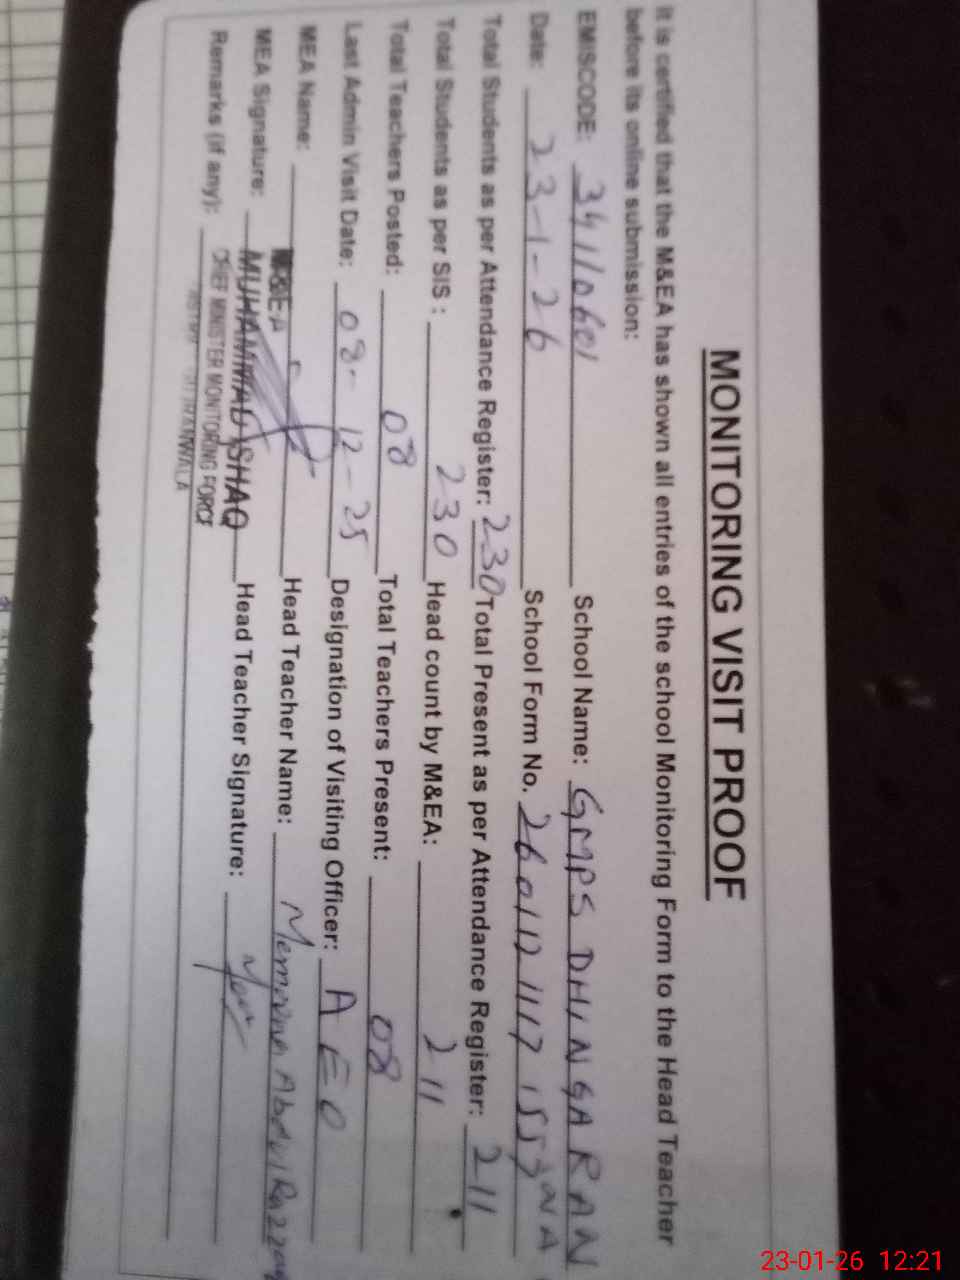 MONITORING VISIT PROOF
It is certified that the M&EA has shown all entries of the school Monitoring Form to the Head Teacher
before its online submission:
EMISCODE: 34110601 School Name: GMPS DHINGARAN
WALA
Date: 23-1-26 School Form No.
Total Students as per Attendance Register: 230 Total Present as per Attendance Register: 211
Total Students as per SIS: 230 Head count by M&EA: 211
Total Teachers Posted: 08 Total Teachers Present: 08
Last Admin Visit Date: 08-12-25 Designation of Visiting Officer: AEO
MEA Name: M&EA Head Teacher Name: Abdul Razzaq
MEA Signature: MUHAMMAD ISHAQ Head Teacher Signature:
Remarks (if any): CHIEF MINISTER MONITORING FORCE
23-01-26 12:21